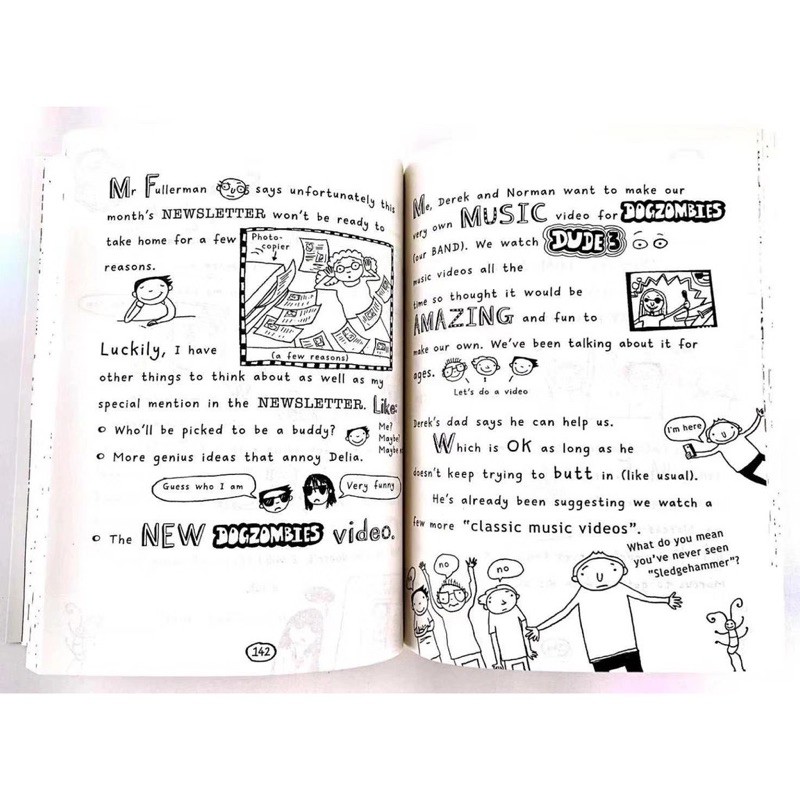 Mr Fullerman says unfortunately this
month's NEWSLETTER won't be ready to
take home for a few
reasons.
Photo-
copier
(a few reasons)
Luckily, I have
other things to think about as well as my
special mention in the NEWSLETTER. Like:
Who'll be picked to be a buddy?
Me?
Maybe?
Maybe
More genius ideas that annoy Delia.
Guess who I am
Very funny
The NEW DOGZOMBIES video.
142
Me, Derek and Norman want to make our
very own MUSIC video for DOGZOMBIES
(our BAND). We watch DUDE 3
music videos all the
time so thought it would be
AMAZING and fun to
make our own. We've been talking about it for
ages.
Let's do a video
Derek's dad says he can help us.
I'm here
Which is OK as long as he
doesn't keep trying to butt in (like usual).
He's already been suggesting we watch a
few more "classic music videos".
What do you mean
you've never seen
"Sledgehammer"?
no
no
no